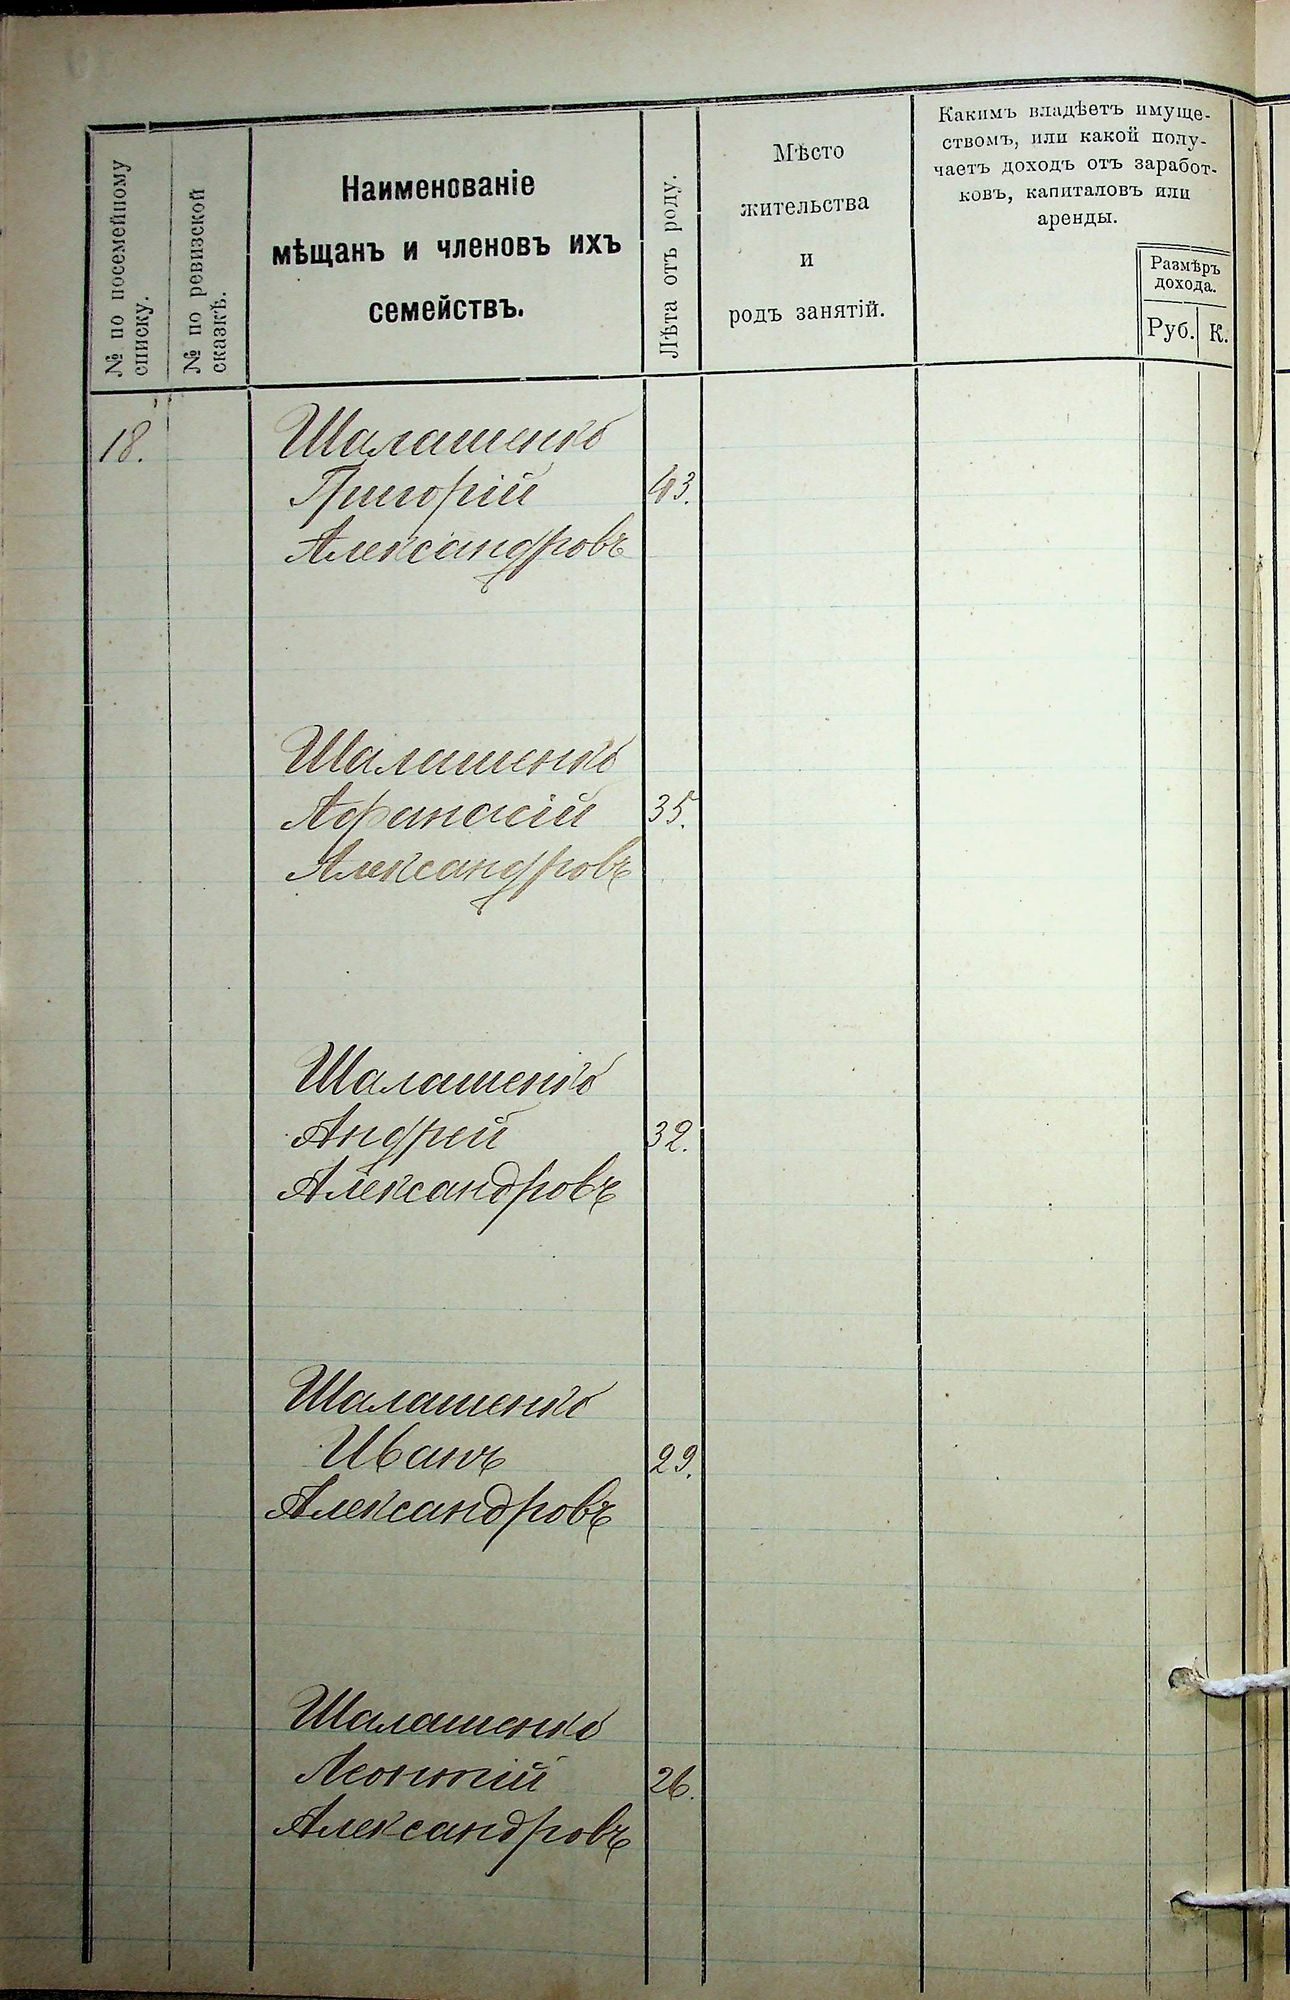 № по посемейному
списку.
№ по ревизской
сказкѣ.
Наименованіе
мѣщанъ и членовъ ихъ
семействъ.
Лѣта отъ роду.
Мѣсто
жительства
и
родъ занятій.
Какимъ владѣетъ имуще-
ствомъ, или какой полу-
чаетъ доходъ отъ заработ-
ковъ, капиталовъ или
аренды.
Размѣръ
дохода.
Руб. К.
18. Шалашенко
Григорій 43.
Александровъ
Шалашенко
Афанасій 35.
Александровъ
Шалашенко
Андрей 32.
Александровъ
Шалашенко
Иванъ 29.
Александровъ
Шалашенко
Леонтій 26.
Александровъ